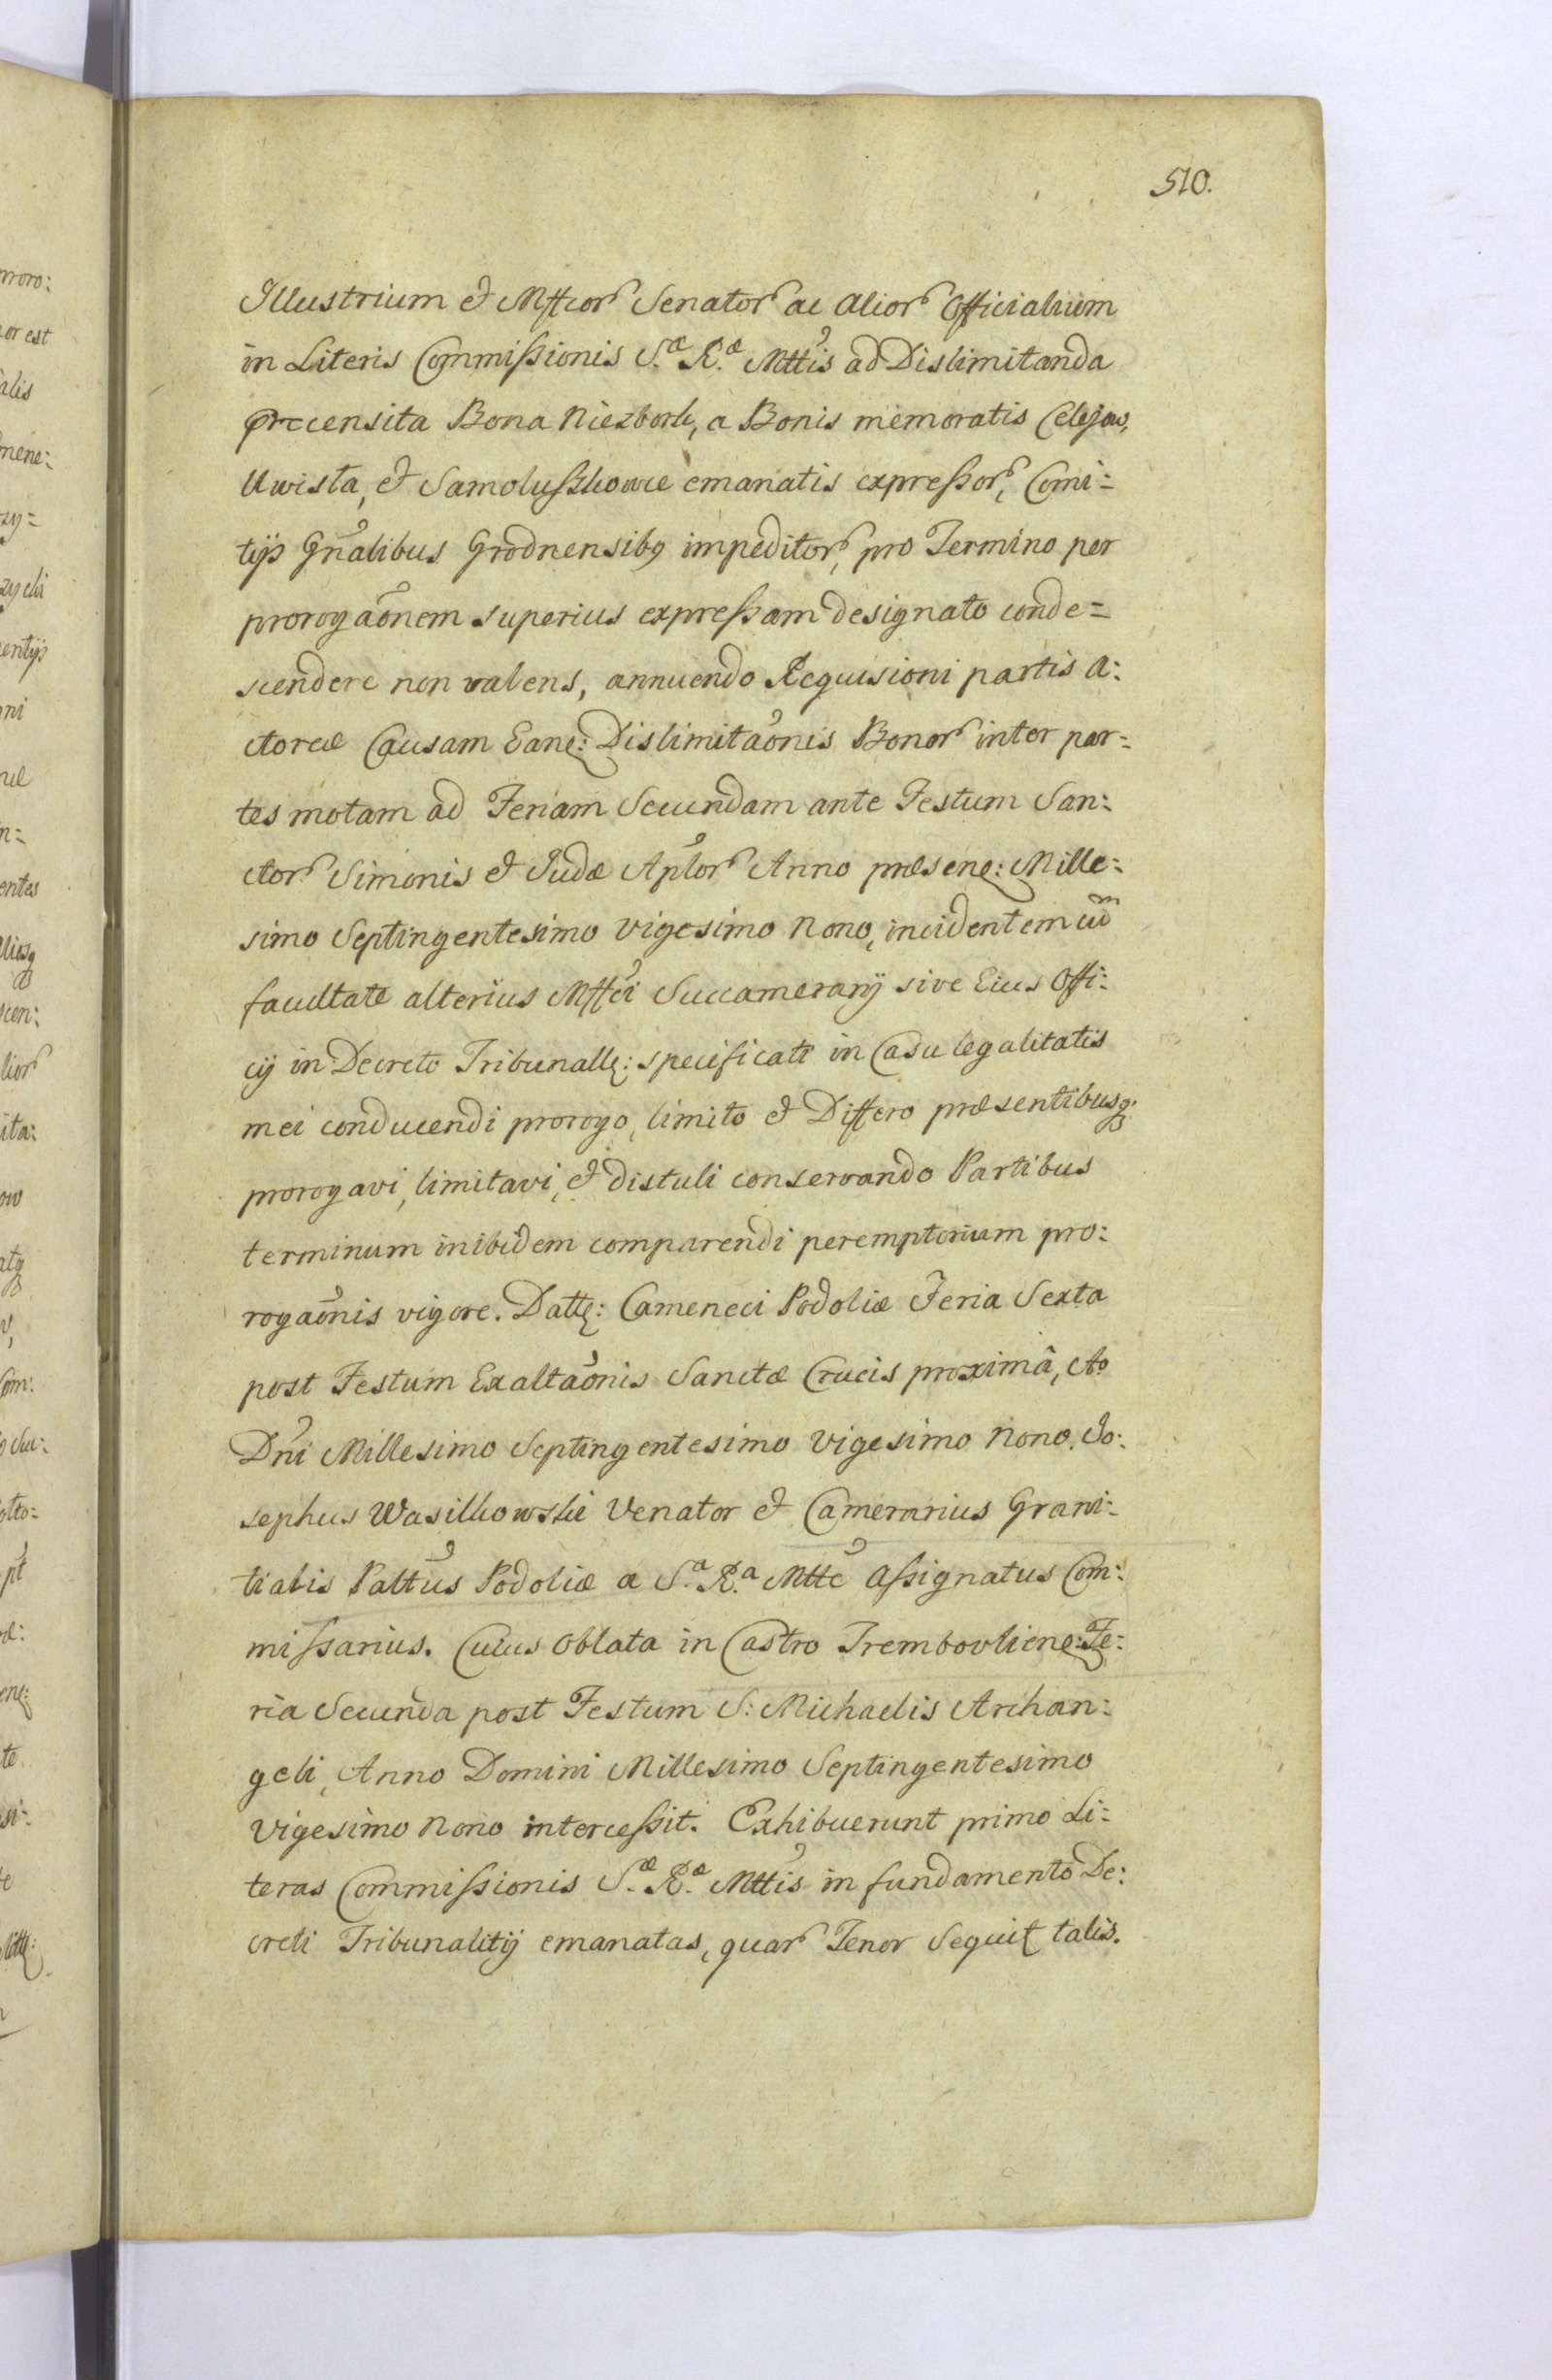 510.
Illustrium et Mffcor Senator ac alior Officialium
in Literis Commissionis S.æ R.æ Mttis ad Dislimitanda
præcensita Bona Niezbork, a Bonis memoratis Celejow,
Uwista, et Samoluszkowce emanatis expressor, Comi=
tijs Gnalibus Grodnensibq impeditor, pro Termino per
prorogaonem superius expressam designato conde=
scendere non valens, annuendo Requisioni partis A:
ctoreæ Causam Eane: Dislimitaonis Bonor inter par=
tes motam ad Feriam Secundam ante Festum San:
ctor Simonis et Judæ Aplor Anno præsene: Mille=
simo Septingentesimo Vigesimo Nono, incidentem cum
facultate alterius Mffci Succamerarij sive Eius Offi:
cij in Decreto Tribunalle: specificati in Casu legalitatis
mei conducendi prorogo, limito et Differo præsentibusq:
prorogavi, limitavi, et distuli conservando Partibus
terminum inibidem comparendi peremptorium pro:
rogaonis vigore. Datte: Cameneci Podoliæ Feria Sexta
post Festum Exaltaonis Sanctæ Crucis proximâ, Ao
Dni Millesimo Septingentesimo Vigesimo Nono. Jo:
sephus Wasilkowski Venator et Camerarius Grani:
tialis Pallus Podoliæ a S.a R.a Mtte Assignatus Com:
missarius. Cuius Oblata in Castro Trembovliene: Fe:
ria Secunda post Festum S: Michaelis Archan:
geli, Anno Domini Millesimo Septingentesimo
Vigesimo Nono intercessit. Exhibuerunt primo Li:
teras Commissionis S.æ R.æ Mttis in fundamento De:
creti Tribunalitij emanatas, quar Tenor Sequit talis.